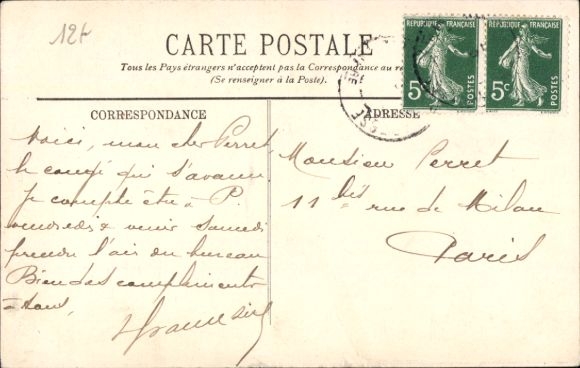 12t
CARTE POSTALE
Tous les Pays étrangers n'acceptent pas la Correspondance au re
(Se renseigner à la Poste).
RÉPUBLIQUE FRANÇAISE
5c
POSTES
RÉPUBLIQUE FRANÇAISE
5c
POSTES
CORRESPONDANCE
Voici, mon cher Perret,
le congé qui s'avance
Je compte être à P.
vendredi & venir samedi
prendre l'air du bureau
Bien des compliments
à tous,
ADRESSE
Monsieur Perret
11 bis rue de Milan
Paris